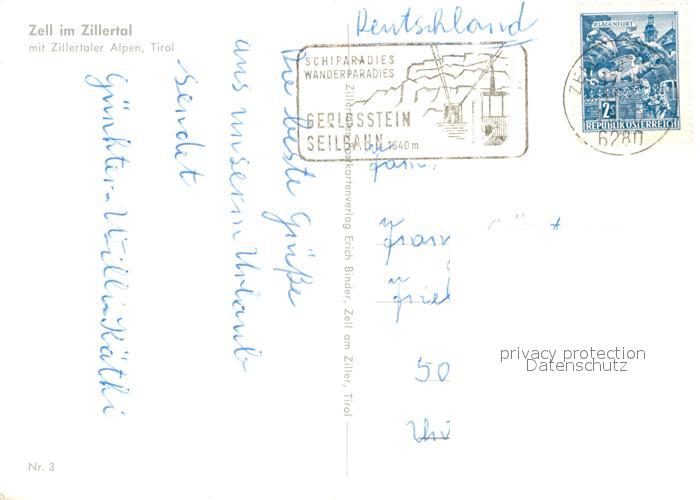 Zell im Zillertal
mit Zillertaler Alpen, Tirol
Deutschland
SCHIPARADIES
WANDERPARADIES
GERLOSSTEIN
SEILBAHN 1640m
KLAGENFURT
2S
REPUBLIK ÖSTERREICH
6280
Die beste Grüße
aus unserm Urlaub
sendet
Günther Willi Käthi
Zillertaler Postkartenverlag Erich Binder, Zell am Ziller, Tirol
Fam.
50
privacy protection
Datenschutz
Nr. 3